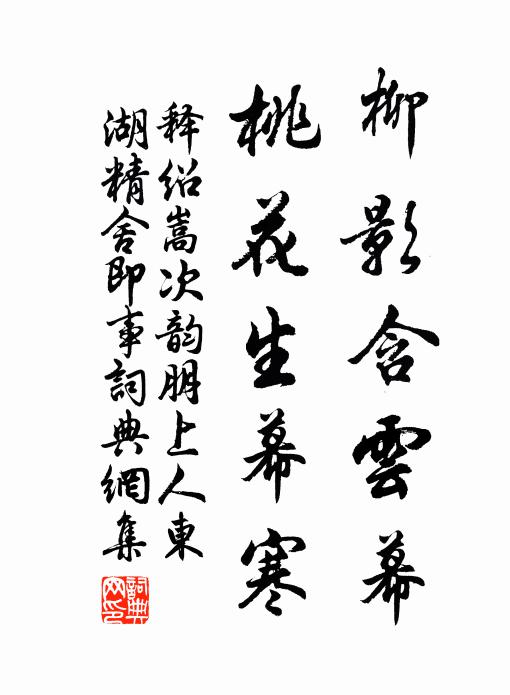 柳影含雲幕
桃花生幕寒
释绍嵩次韵朋上人東
湖精舍即事詞典網集
詞典网印